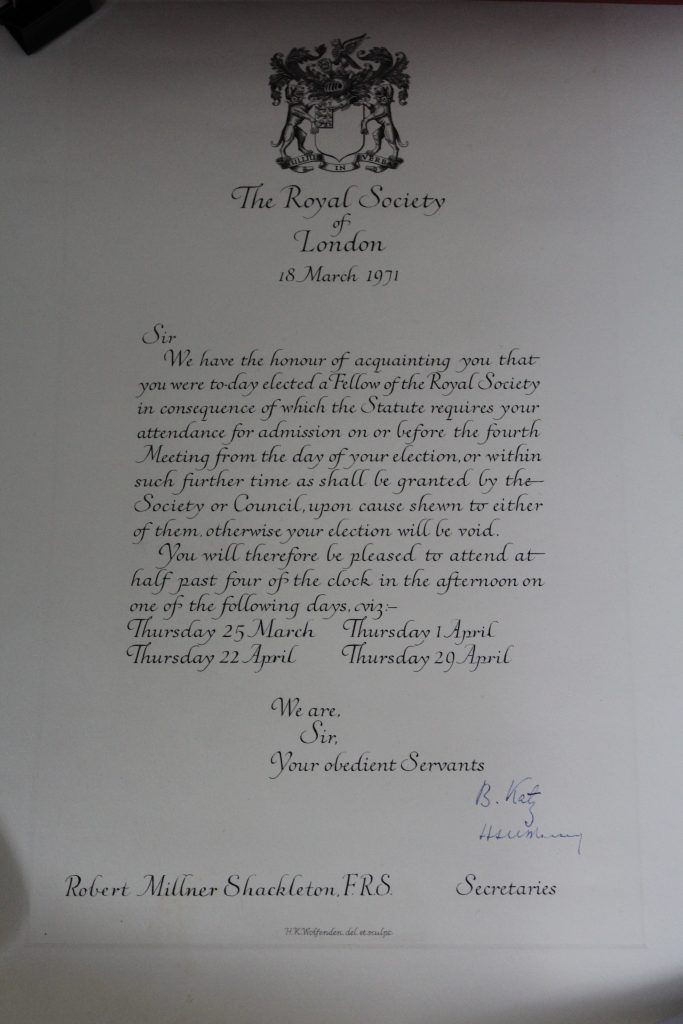 NULLIUS IN VERBA
The Royal Society
of
London
18 March 1971
Sir
We have the honour of acquainting you that
you were to-day elected a Fellow of the Royal Society
in consequence of which the Statute requires your
attendance for admission on or before the fourth
Meeting from the day of your election, or within
such further time as shall be granted by the
Society or Council, upon cause shewn to either
of them, otherwise your election will be void.
You will therefore be pleased to attend at
half past four of the clock in the afternoon on
one of the following days, viz:-
Thursday 25 March Thursday 1 April
Thursday 22 April Thursday 29 April
We are,
Sir,
Your obedient Servants
B. Katz
Robert Millner Shackleton, F.R.S. Secretaries
H.K.Wolfenden. del. et sculpt.